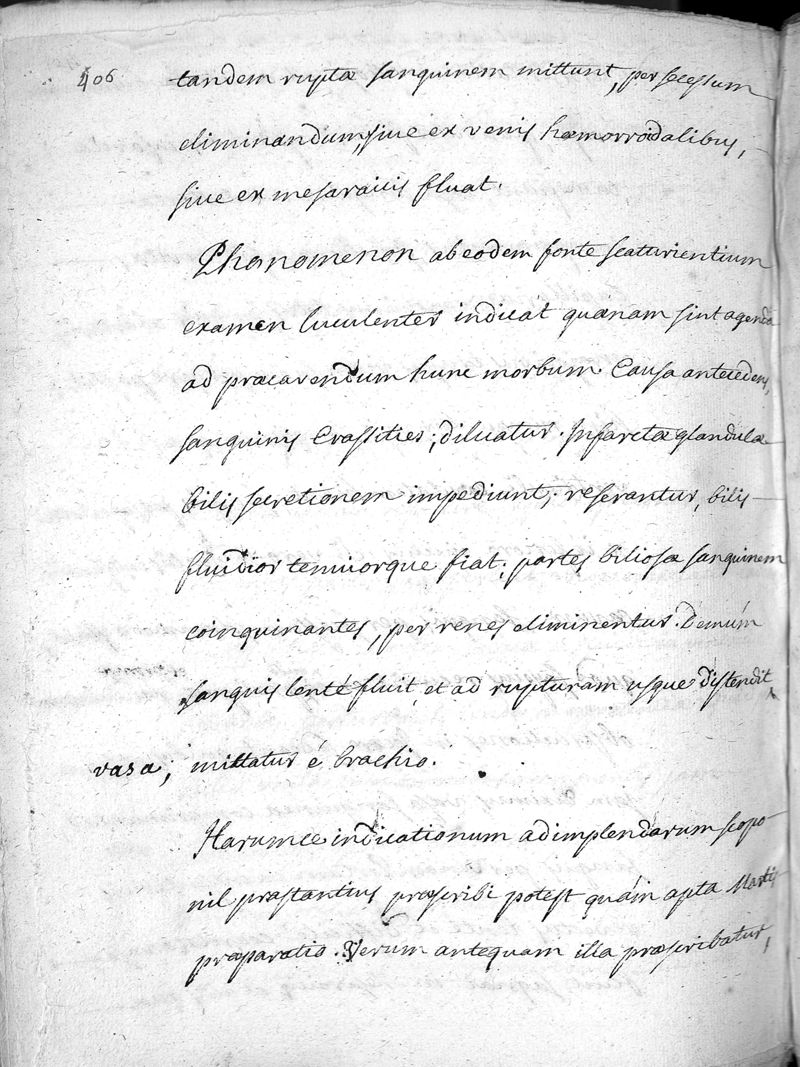 406
tandem ruptæ sanguinem mittunt, per secessum
eliminandum, siue ex venis hæmorrodalibus,
siue ex mesaraicis fluat.
Phænomenon ab eodem fonte scaturientium
examen luculenter indicat quænam sint agenda
ad præcavendum hunc morbum. Causa antecedens,
sanguinis Crassities, diluatur. Infarctæ glandulæ
bilis secretionem impediunt; reserantur, bilis
fluidior tenuiorque fiat; partes biliosæ sanguinem
coinquinantes, per renes eliminentur. Demúm
sanguis lenté fluit, et ad rupturam usque distendit
vasa; mittatur é brachio.
Harumce indicationum adimplendarum scopo
nil præstantius præscribi potest quám apta Martis
præparatio. Verum antequam illa præscribatur,